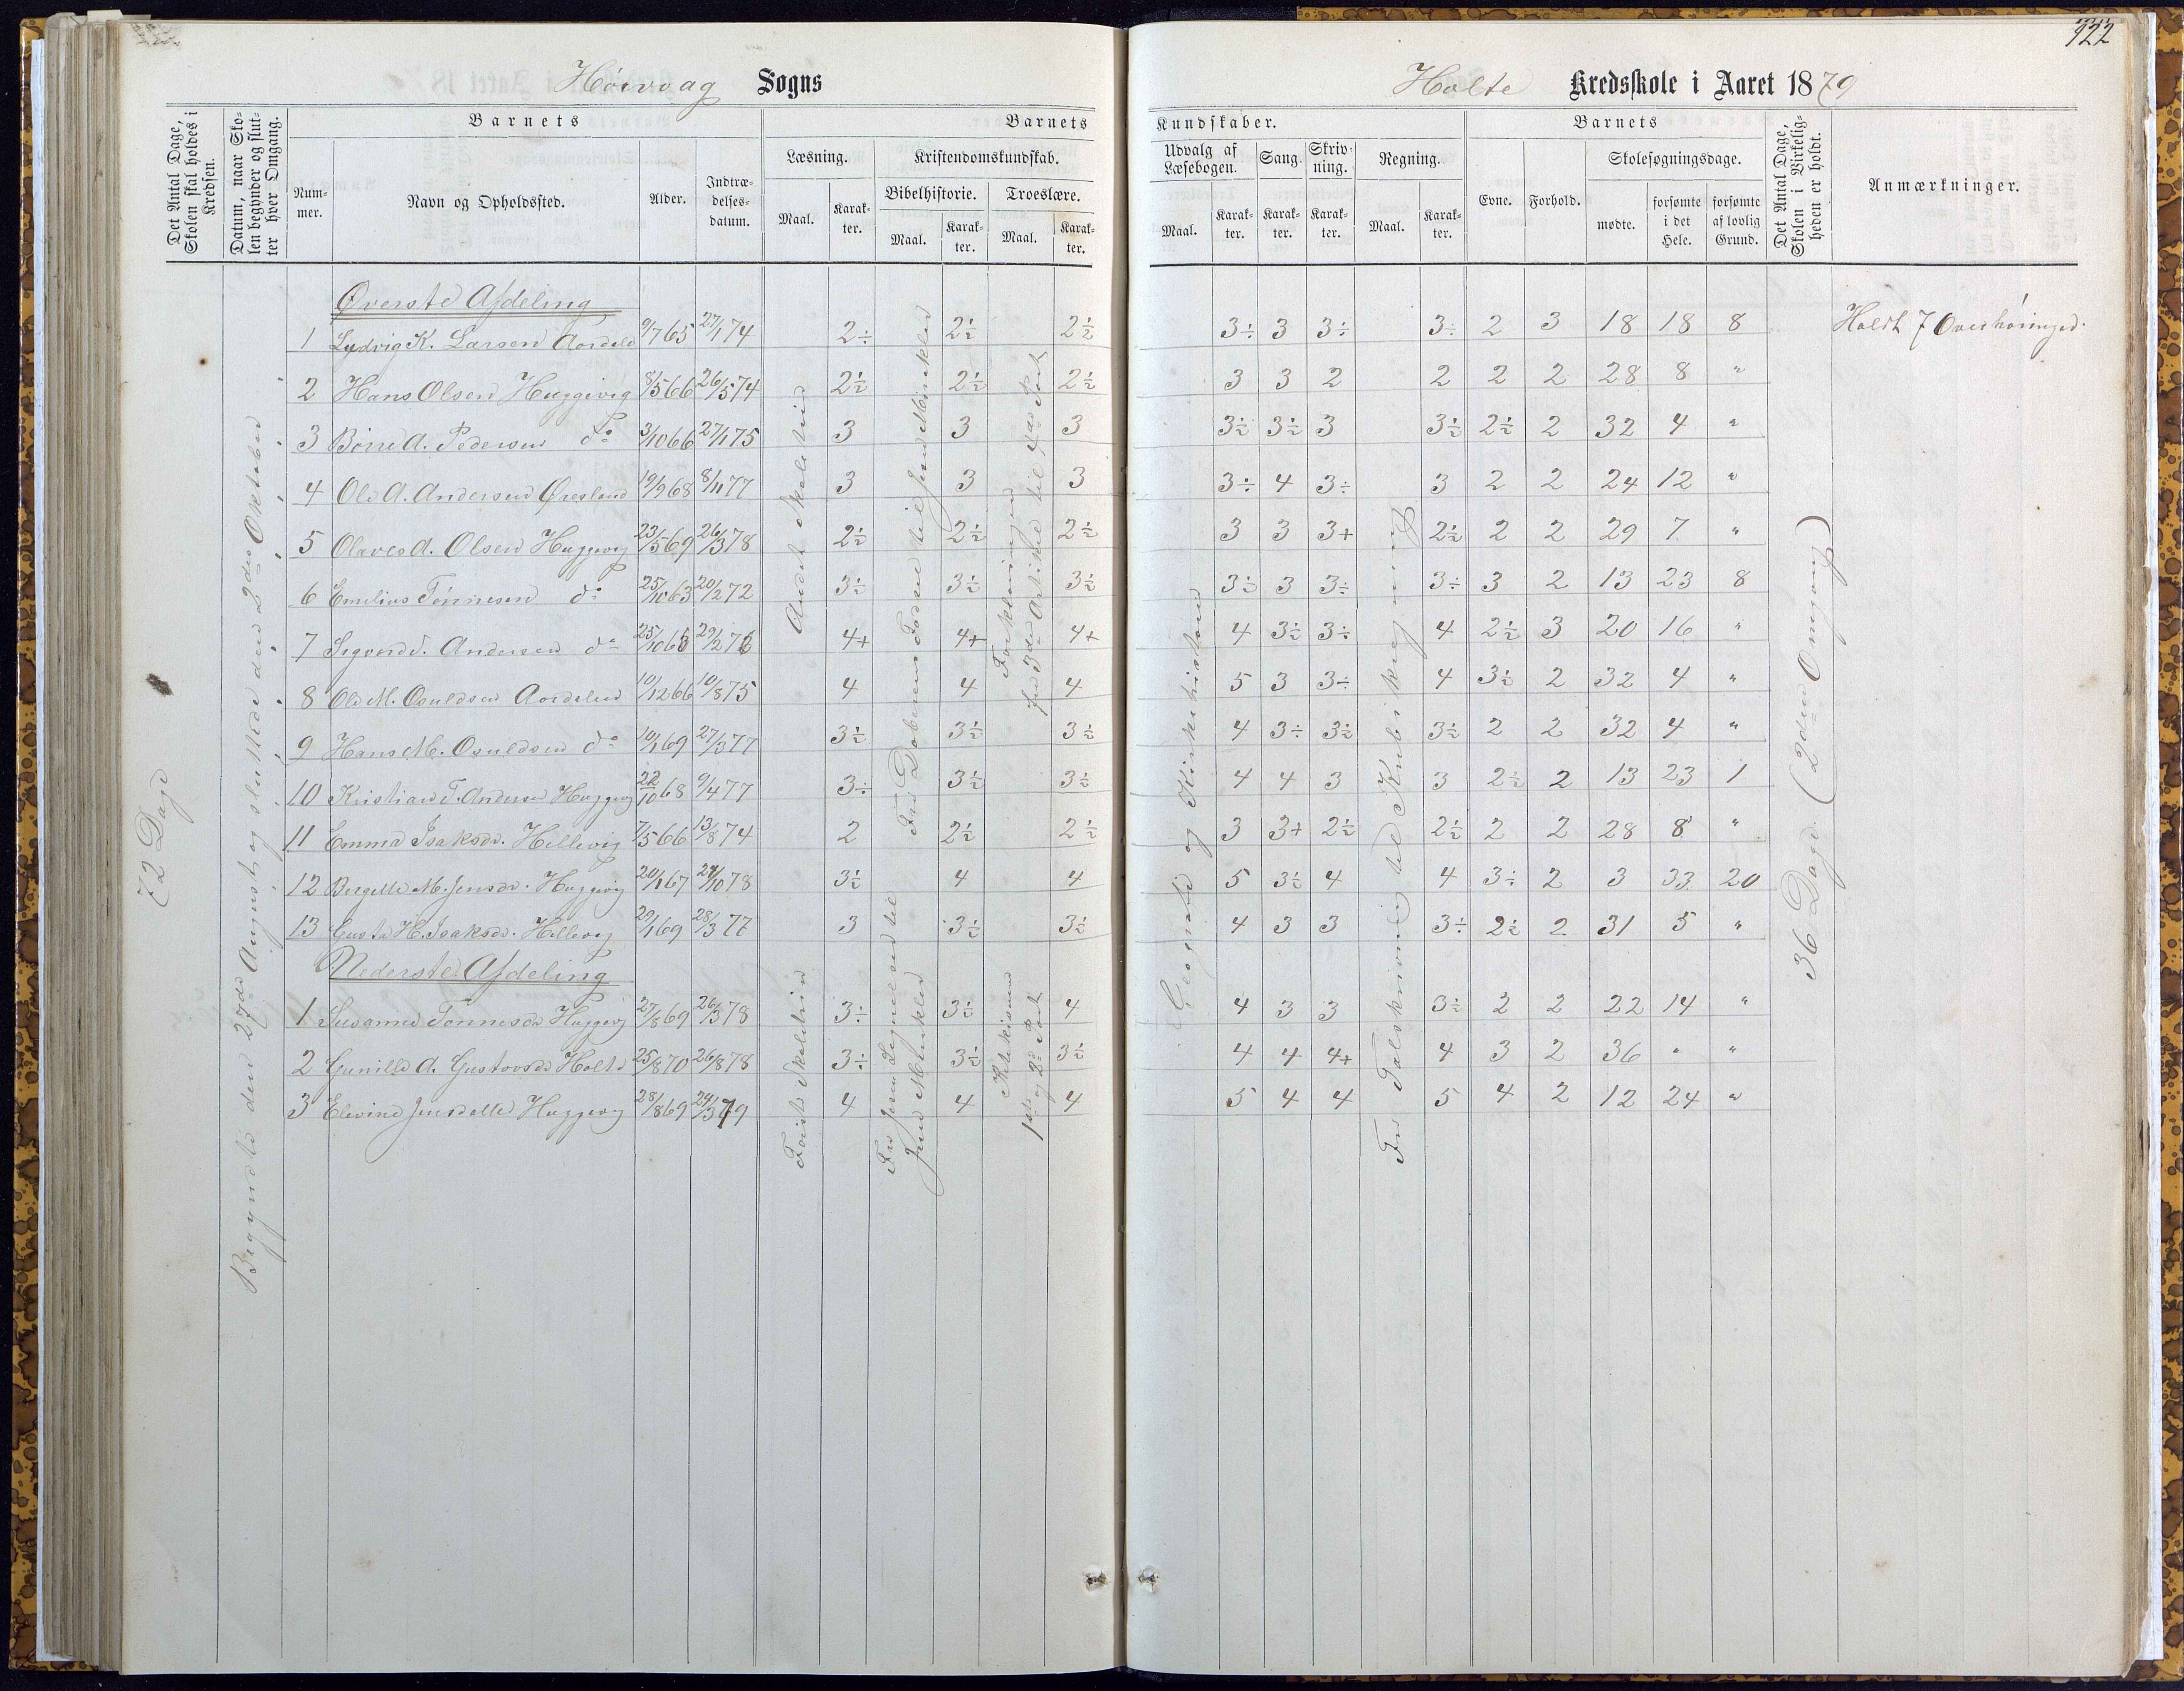 122
Høivaag Sogns
Holte Kredsskole i Aaret 1879
Det Antal Dage, Skolen skal holdes i Kredsen.
Datum, naar Skolen begynder og slutter hver Omgang.
Barnets
Nummer.
Navn og Opholdssted.
Alder.
Indtrædelsesdatum.
Barnets
Læsning.
Maal.
Karakter.
Kristendomskundskab.
Bibelhistorie.
Maal.
Karakter.
Troeslære.
Maal.
Karakter.
Kundskaber.
Udvalg af Læsebogen.
Maal.
Karakter.
Sang.
Karakter.
Skrivning.
Karakter.
Regning.
Maal.
Karakter.
Barnets
Evne.
Forhold.
Skolesøgningsdage.
mødte.
forsømte i det Hele.
forsømte af lovlig Grund.
Det Antal Dage, Skolen i Virkeligheden er holdt.
Anmærkninger.
72 Dage
Begyndte den 27de August, og sluttede den 2den Oktober
Øverste Afdeling
1 Ludvig K. Larsen Aardale 9/7 65 27/1 74 2÷ 2½ 2½ 3÷ 3 3÷ 3÷ 2 3 18 18 8 Holdt 7 Overhøringer.
2 Hans Olsen Huggevig 8/5 66 26/5 74 2½ 2½ 2½ 3 3 2 2 2 2 28 8 "
3 Børre A. Pedersen do 3/10 66 27/1 75 3 3 3 3½ 3½ 3 3½ 2½ 2 32 4 "
4 Ole A. Andersen Øresland 19/9 68 8/11 77 3 3 3 3÷ 4 3÷ 3 2 2 24 12 "
5 Olaves A. Olsen Huggevig 23/5 69 26/3 78 2½ 2½ 2½ 3 3 3+ 2½ 2 2 29 7 "
6 Emelius Tønnesen do 25/10 63 20/2 72 3½ 3½ 3½ 3½ 3 3÷ 3÷ 3 2 13 23 8
7 Sigvard T. Andersen do 25/10 66 29/2 76 4+ 4+ 4+ 4 3½ 3÷ 4 2½ 3 20 16 "
8 Ole M. Osuldsen Aardalen 10/12 66 10/8 75 4 4 4 5 3 3÷ 4 3½ 2 32 4 "
9 Hans M. Osuldsen do 10/1 69 27/3 77 3½ 3½ 3½ 4 3÷ 3½ 3½ 2 2 32 4 "
10 Kristian T. Andersen Huggevig 22/10 68 9/4 77 3÷ 3½ 3½ 4 4 3 3 2½ 2 13 23 1
11 Emma Isaksdr. Hellevig 7/5 66 13/8 74 2 2½ 2½ 3 3+ 2½ 2½ 2 2 28 8 "
12 Bergitte M. Jensdr. Huggevig 20/1 67 29/10 78 3½ 4 4 5 3½ 4 4 3÷ 2 3 33 20
13 Gusta H. Isaksdr. Hellevig 29/1 69 28/3 77 3 3½ 3½ 4 3 3 3÷ 2½ 2 31 5 "
Nederste Afdeling
1 Susanne Tønnesdr Huggevig 27/8 69 26/3 78 3÷ 3½ 4 4 3 3 3½ 2 2 22 14 "
2 Gunille A. Gustavsdr Holte 25/8 70 26/8 78 3÷ 3½ 3½ 4 4 4+ 4 3 2 36 " "
3 Elevine Jensdatter Huggevig 28/8 69 24/3 79 4 4 4 5 4 4 5 4 2 12 24 "
Andet Skoletrin
Fra Døberens Fødsel til Jesu Mirakler
Forklaringen
fra 3die Artikel til 4de Part
Første Skoletrin
Fra Jesu Legnelser til
Jesu Mirakler
Katekismen
1ste og 2d Part
Geografi og Kirkehistorie
Fra Talskrivning til Kubikregning
36 Dage. (2den Omgang)